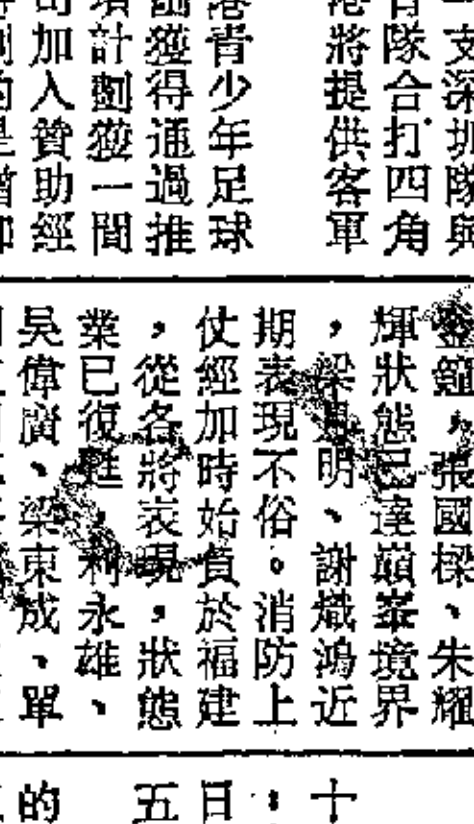 一支深圳隊與
隊合打四角
港將提供客軍
港青少年足球
劃獲得通過推
項計劃獲一間
司加入贊助經
籠，張國樑、朱耀
輝狀態已達巔峯境界
，梁明、謝熾鴻近
期表現不俗。消防上
仗經加時始負於福建
，從各將表現，狀態
業已復甦。利永雄、
吳偉廣、梁東成、單
十
日：
五
的